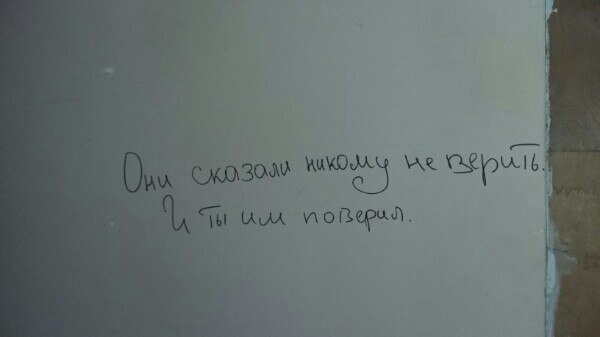 Они сказали никому не верить.
И ты им поверил.